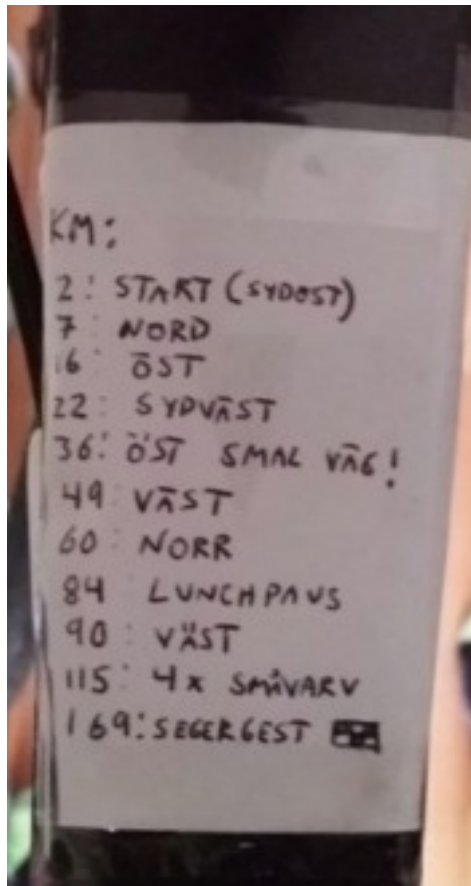 KM:
2: START (SYDOST)
7: NORD
16: ÖST
22: SYDVÄST
36: ÖST SMAL VÄG!
49: VÄST
60: NORR
84 LUNCHPAUS
90: VÄST
115: 4x SMÅVARV
169: SEGERGEST